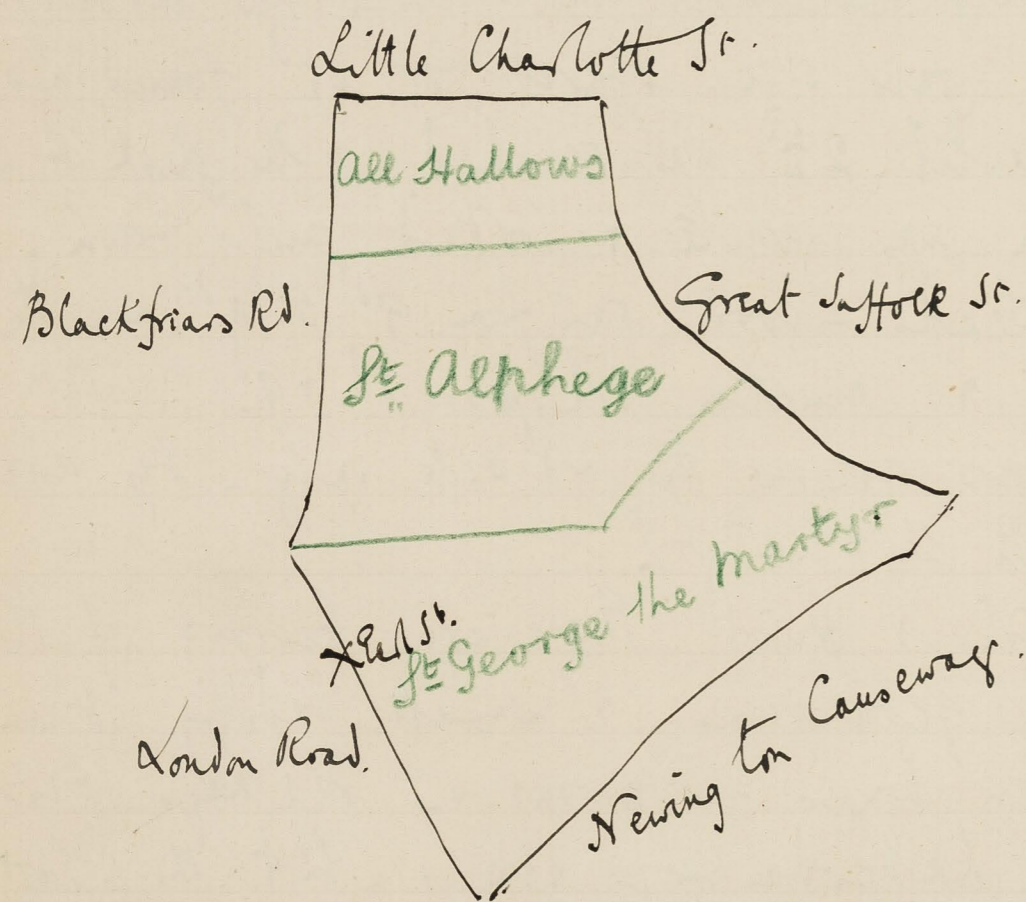 Little Charlotte St.
All Hallows
Blackfriars Rd.
Great Suffolk St.
St. Alphege
St George the Martyr
Earl St.
London Road.
Newington Causeway.